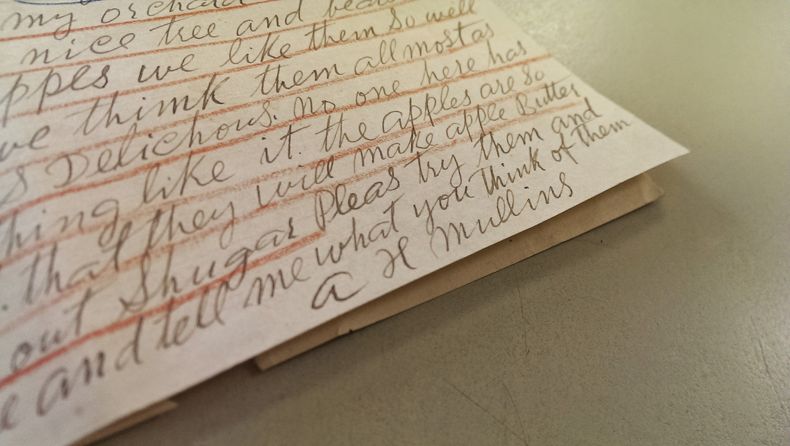 my orchard
nice tree and
we like them so well
we think them all most as
Delichous. no one here has
hing like it. the apples are so
that they will make apple Butter
out Shugar Pleas try them and
and tell me what you think of them
a H Mullins